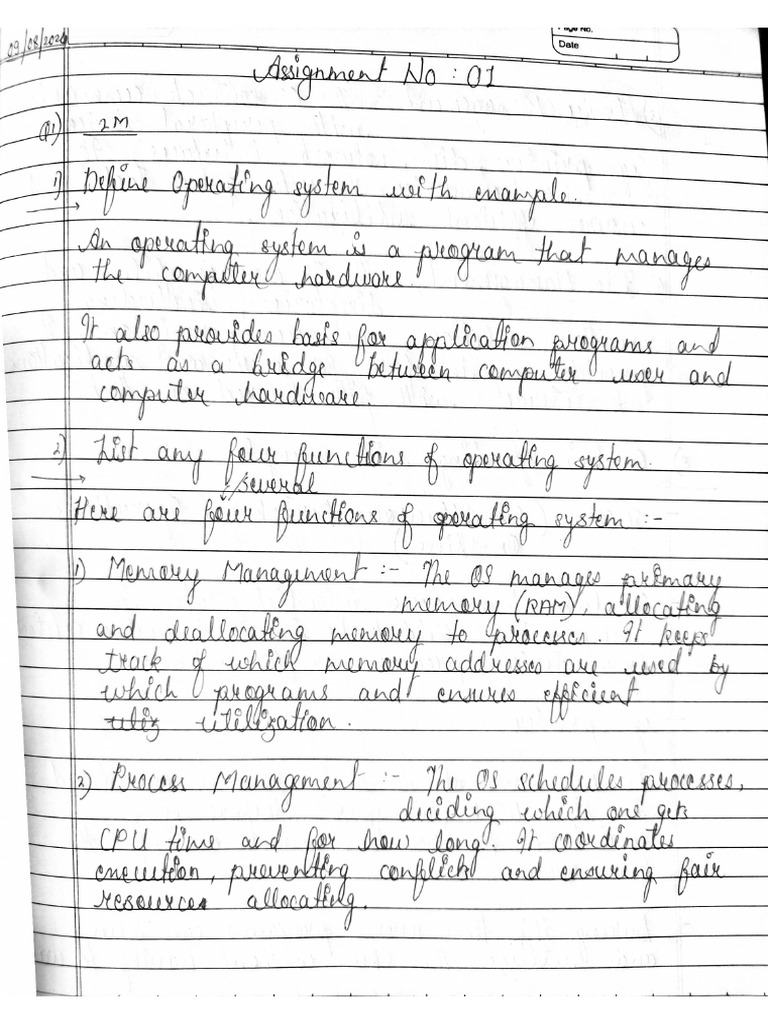 09/08/2026
Page No.
Date
Assignment No : 01
Q1) 2M
1) Define Operating system with example.
An operating system is a program that manages
the computer hardware.
It also provides basis for application programs and
acts as a bridge between computer user and
computer hardware.
2) List any four functions of operating system.
several
Here are four functions of operating system :-
1) Memory Management :- The OS manages primary
memory (RAM), allocating
and deallocating memory to processes. It keeps
track of which memory addresses are used by
which programs and ensures efficient
utiliz utilization.
2) Process Management :- The OS schedules processes,
deciding which one gets
CPU time and for how long. It coordinates
execution, preventing conflicts and ensuring fair
resources allocating.